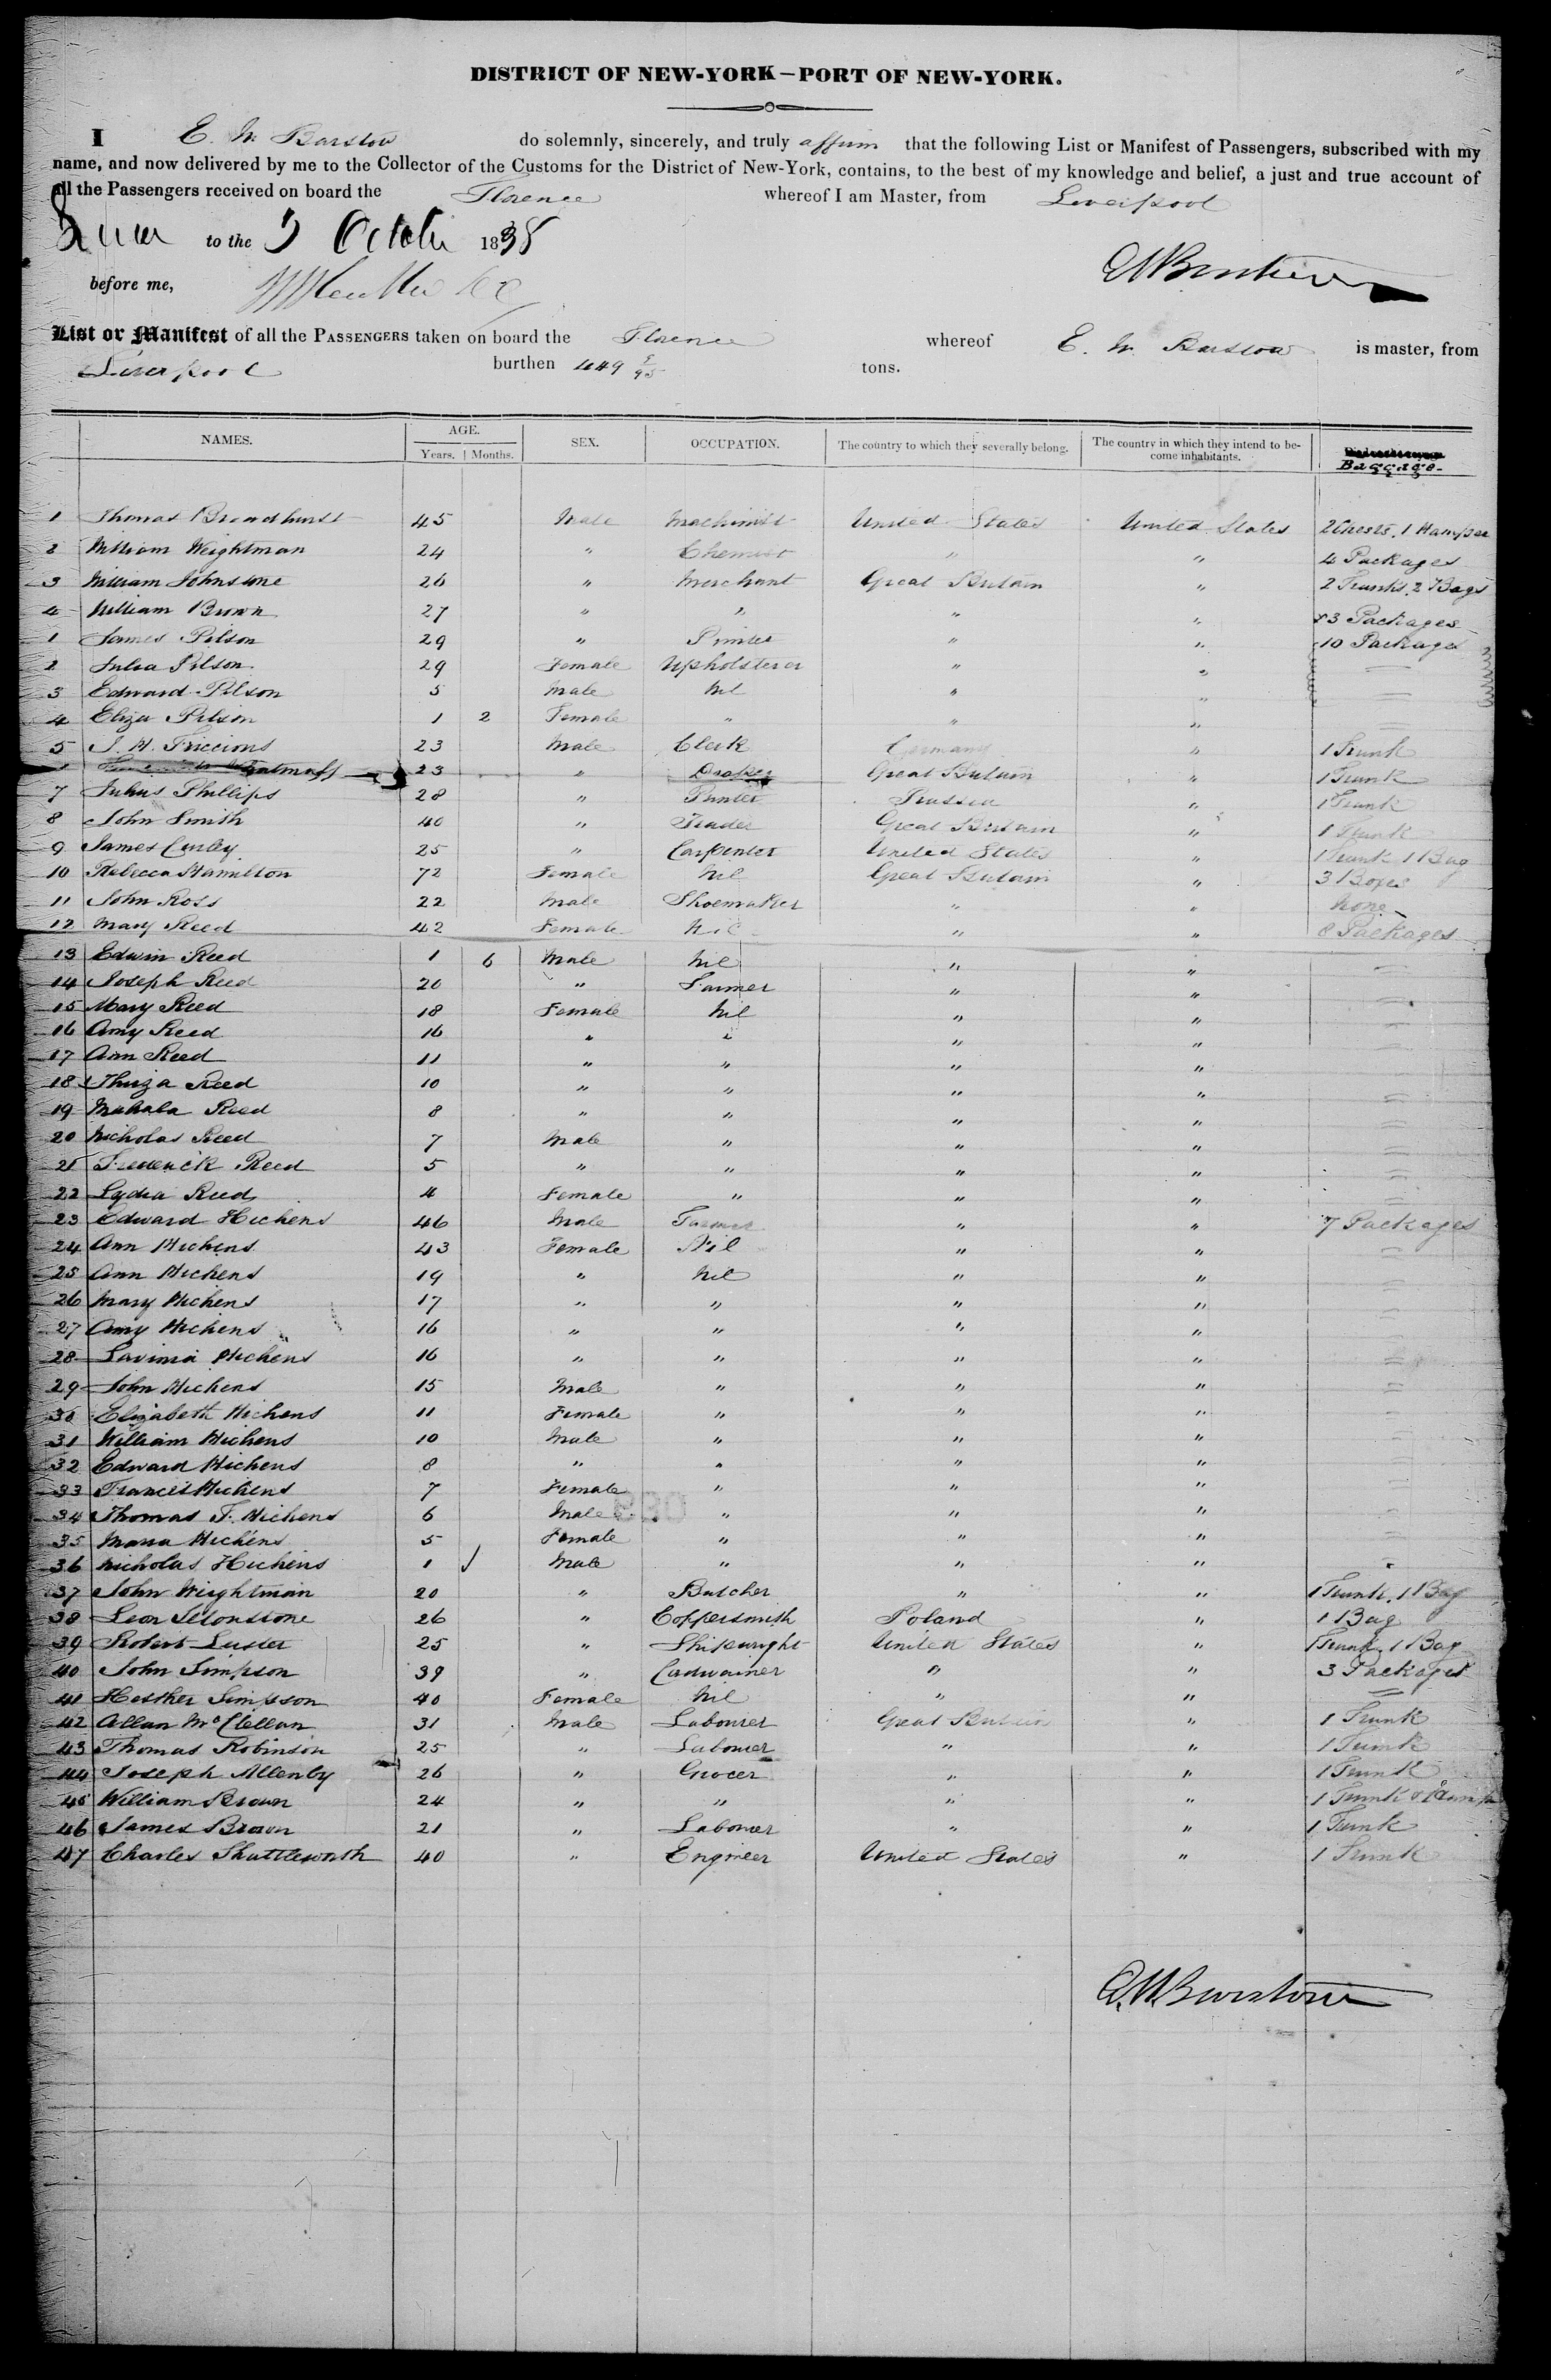 DISTRICT OF NEW-YORK—PORT OF NEW-YORK.
I E. W. Barstow do solemnly, sincerely, and truly affirm that the following List or Manifest of Passengers, subscribed with my
name, and now delivered by me to the Collector of the Customs for the District of New-York, contains, to the best of my knowledge and belief, a just and true account of
all the Passengers received on board the Florence whereof I am Master, from Liverpool
to the 5 October 1838
before me,
List or Manifest of all the PASSENGERS taken on board the Florence whereof E. W. Barstow is master, from
Liverpool burthen 449 5/95 tons.
NAMES. AGE. Years. Months. SEX. OCCUPATION. The country to which they severally belong. The country in which they intend to become inhabitants. Baggage.
1 Thomas Broadhurst 45 Male Machinist United States United States 2 Chests, 1 Hamper
2 William Weightman 24 " Chemist " " 4 Packages
3 William Johnstone 26 " Merchant Great Britain " 2 Trunks, 2 Bags
4 William Brown 27 " " " " 83 Packages
1 James Pilson 29 " Printer " " 10 Packages
2 Julia Pilson 29 Female Upholsterer " "
3 Edward Pilson 5 Male Nil " "
4 Eliza Pilson 1 2 Female " " "
5 J. H. Friccions 23 Male Clerk Germany " 1 Trunk
23 " Draper Great Britain " 1 Trunk
7 Julius Phillips 28 " Printer Prussia " 1 Trunk
8 John Smith 40 " Trader Great Britain " 1 Trunk
9 James Curley 25 " Carpenter United States " 1 Trunk 1 Bag
10 Rebecca Hamilton 72 Female Nil Great Britain " 3 Boxes
11 John Ross 22 Male Shoemaker " " None
12 Mary Reed 42 Female Nil " " 8 Packages
13 Edwin Reed 1 6 Male Nil " "
14 Joseph Reed 20 " Farmer " "
15 Mary Reed 18 Female Nil " "
16 Amy Reed 16 " " " "
17 Ann Reed 11 " " " "
18 Thirza Reed 10 " " " "
19 Mahala Reed 8 " " " "
20 Nicholas Reed 7 Male " " "
21 Frederick Reed 5 " " " "
22 Lydia Reed 4 Female " " "
23 Edward Hichens 46 Male Farmer " " 7 Packages
24 Ann Hichens 43 Female Nil " "
25 Ann Hichens 19 " Nil " "
26 Mary Hichens 17 " " " "
27 Amy Hichens 16 " " " "
28 Lavinia Hichens 16 " " " "
29 John Hichens 15 Male " " "
30 Elizabeth Hichens 11 Female " " "
31 William Hichens 10 Male " " "
32 Edward Hichens 8 " " " "
33 Francis Hichens 7 Female " " "
34 Thomas F. Hichens 6 Male " " "
35 Maria Hichens 5 Female " " "
36 Nicholas Hichens 1 Male " " "
37 John Weightman 20 " Butcher " " 1 Trunk, 1 Bag
38 Leon 26 " Coppersmith Poland " 1 Bag
39 Robert Luster 25 " Shipwright United States " 1 Trunk, 1 Bag
40 John Simpson 39 " Cordwainer " " 3 Packages
41 Hesther Simpson 40 Female Nil " "
42 Allan McClellan 31 Male Labourer Great Britain " 1 Trunk
43 Thomas Robinson 25 " Labourer " " 1 Trunk
44 Joseph Allenby 26 " Grocer " " 1 Trunk
45 William Brown 24 " " " " 1 Trunk &
46 James Brown 21 " Labourer " " 1 Trunk
47 Charles Shuttleworth 40 " Engineer United States " 1 Trunk
E. W. Barstow